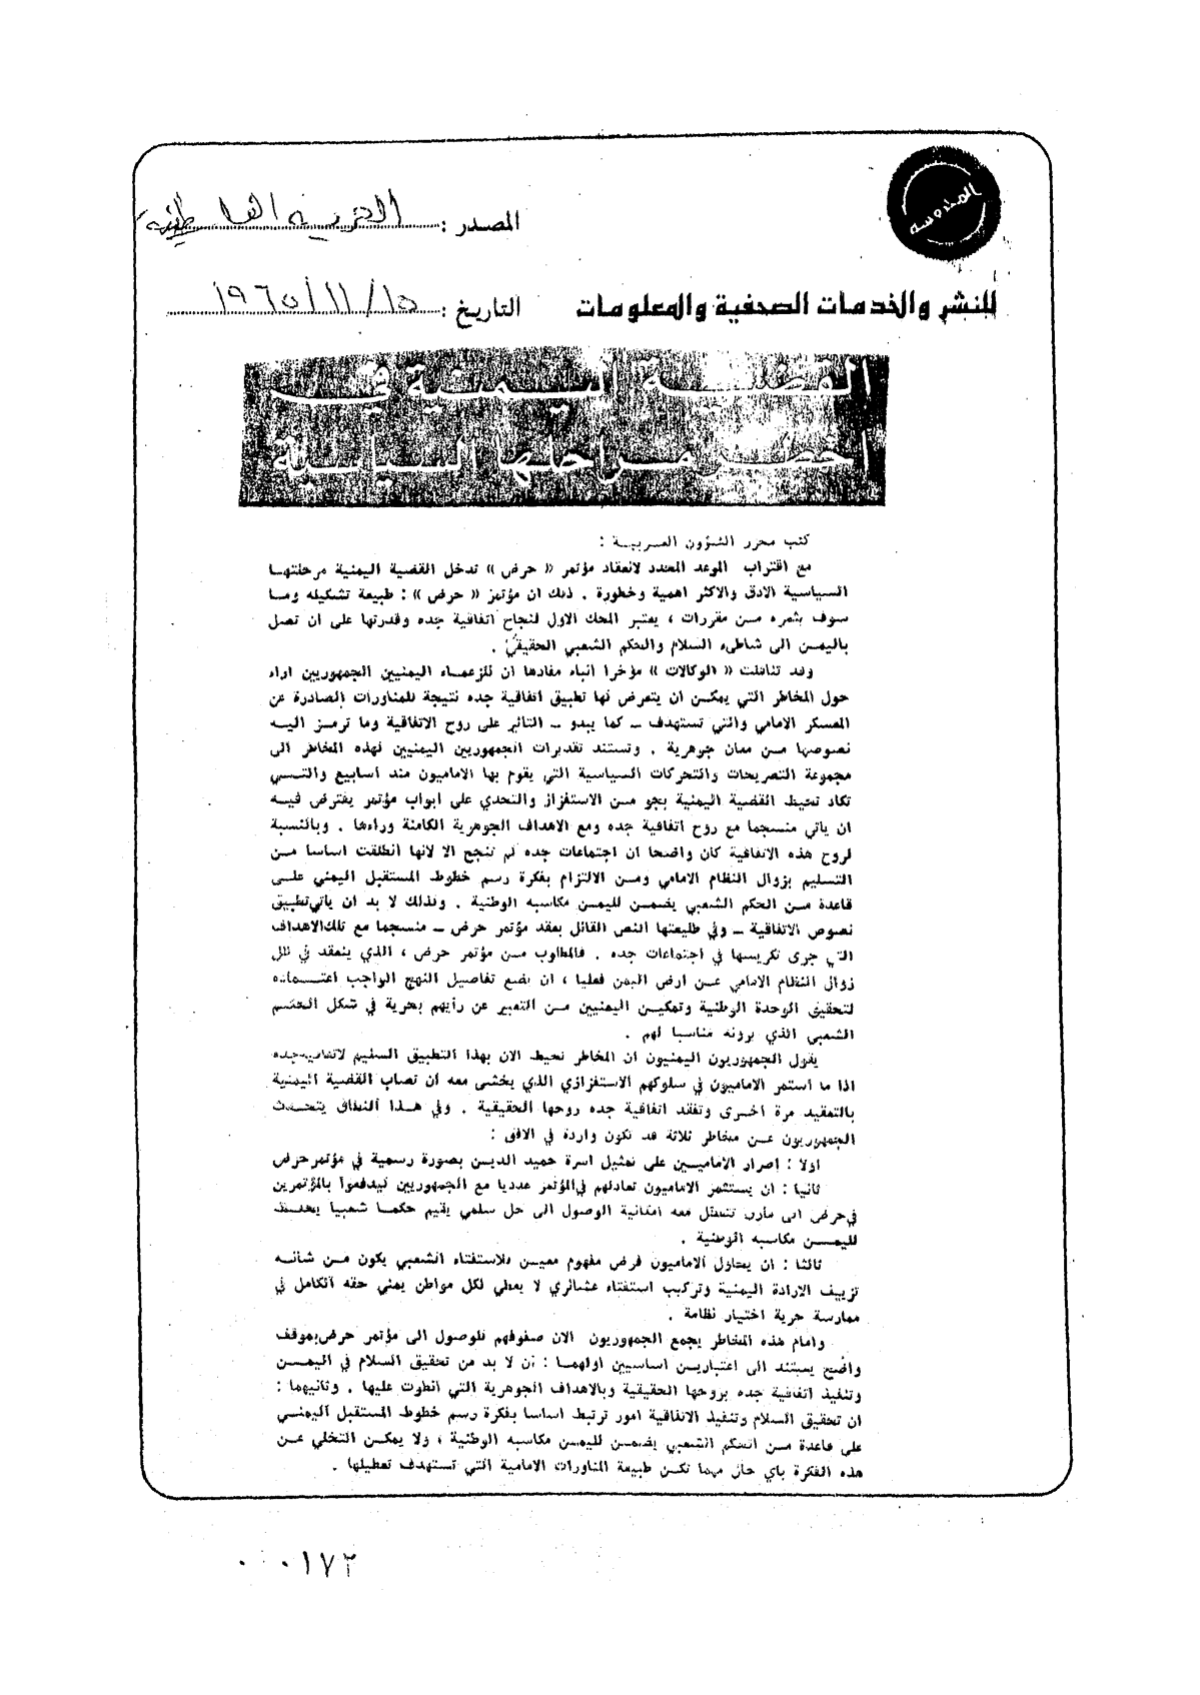 المصدر :
التاريخ : ١٩٦٥/١١/١٥
للنشر والخدمات الصحفية والمعلومات
القضية اليمنية في
اخطر مراحلها السياسية
كتب محرر الشؤون العربية :
مع اقتراب الموعد المحدد لانعقاد مؤتمر « حرض » تدخل القضية اليمنية مرحلتها
السياسية الادق والاكثر اهمية وخطورة . ذلك ان مؤتمر « حرض » : طبيعة تشكيله وما
سوف يثمره من مقررات ، يعتبر المحك الاول لنجاح اتفاقية جده وقدرتها على ان تصل
باليمن الى شاطىء السلام والحكم الشعبي الحقيقي .
وقد تناقلت « الوكالات » مؤخرا انباء مفادها ان للزعماء اليمنيين الجمهوريين اراء
حول المخاطر التي يمكن ان يتعرض لها تطبيق اتفاقية جده نتيجة للمناورات الصادرة عن
المعسكر الامامي والتي تستهدف – كما يبدو – التاثير على روح الاتفاقية وما ترمز اليه
نصوصها من معان جوهرية . وتستند تقديرات الجمهوريين اليمنيين لهذه المخاطر الى
مجموعة التصريحات والتحركات السياسية التي يقوم بها الاماميون منذ اسابيع والتي
تكاد تحيط القضية اليمنية بجو من الاستفزاز والتحدي على ابواب مؤتمر يفترض فيه
ان ياتي منسجما مع روح اتفاقية جده ومع الاهداف الجوهرية الكامنة وراءها . وبالنسبة
لروح هذه الاتفاقية كان واضحا ان اجتماعات جده لم تنجح الا لانها انطلقت اساسا من
التسليم بزوال النظام الامامي ومن الالتزام بفكرة رسم خطوط المستقبل اليمني على
قاعدة من الحكم الشعبي يضمن لليمن مكاسبه الوطنية . ولذلك لا بد ان ياتي تطبيق
نصوص الاتفاقية – وفي طليعتها النص القائل بعقد مؤتمر حرض – منسجما مع تلك الاهداف
التي جرى تكريسها في اجتماعات جده . فالمطلوب من مؤتمر حرض ، الذي ينعقد في ظل
زوال النظام الامامي عن ارض اليمن فعليا ، ان يضع تفاصيل النهج الواجب اعتماده
لتحقيق الوحدة الوطنية وتمكين اليمنيين من التعبير عن رأيهم بحرية في شكل الحكم
الشعبي الذي يرونه مناسبا لهم .
يقول الجمهوريون اليمنيون ان المخاطر تحيط الان بهذا التطبيق السليم لاتفاقية جده
اذا ما استمر الاماميون في سلوكهم الاستفزازي الذي يخشى معه ان تصاب القضية اليمنية
بالتعقيد مرة اخرى وتفقد اتفاقية جده روحها الحقيقية . وفي هذا النطاق يتحدث
الجمهوريون عن مخاطر ثلاثة قد تكون واردة في الافق :
اولا : اصرار الاماميين على تمثيل اسرة حميد الدين بصورة رسمية في مؤتمر حرض
ثانيا : ان يستثمر الاماميون تعادلهم في المؤتمر عدديا مع الجمهوريين ليدفعوا بالمؤتمرين
في حرض الى مأزق تتعطل معه امكانية الوصول الى حل سلمي يقيم حكما شعبيا يحفظ
لليمن مكاسبه الوطنية .
ثالثا : ان يحاول الاماميون فرض مفهوم معين للاستفتاء الشعبي يكون من شانه
تزييف الارادة اليمنية وتركيب استفتاء عشائري لا يعطي لكل مواطن يمني حقه الكامل في
ممارسة حرية اختيار نظامة .
وامام هذه المخاطر يجمع الجمهوريون الان صفوفهم للوصول الى مؤتمر حرض بموقف
واضح يستند الى اعتبارين اساسيين اولهما : ان لا بد من تحقيق السلام في اليمن
وتنفيذ اتفاقية جده بروحها الحقيقية وبالاهداف الجوهرية التي انطوت عليها . وثانيهما :
ان تحقيق السلام وتنفيذ الاتفاقية امور ترتبط اساسا بفكرة رسم خطوط المستقبل اليمني
على قاعدة من الحكم الشعبي يضمن لليمن مكاسبه الوطنية ، ولا يمكن التخلي عن
هذه الفكرة باي حال مهما تكن طبيعة المناورات الامامية التي تستهدف تعطيلها .
٠٠٠١٧٣